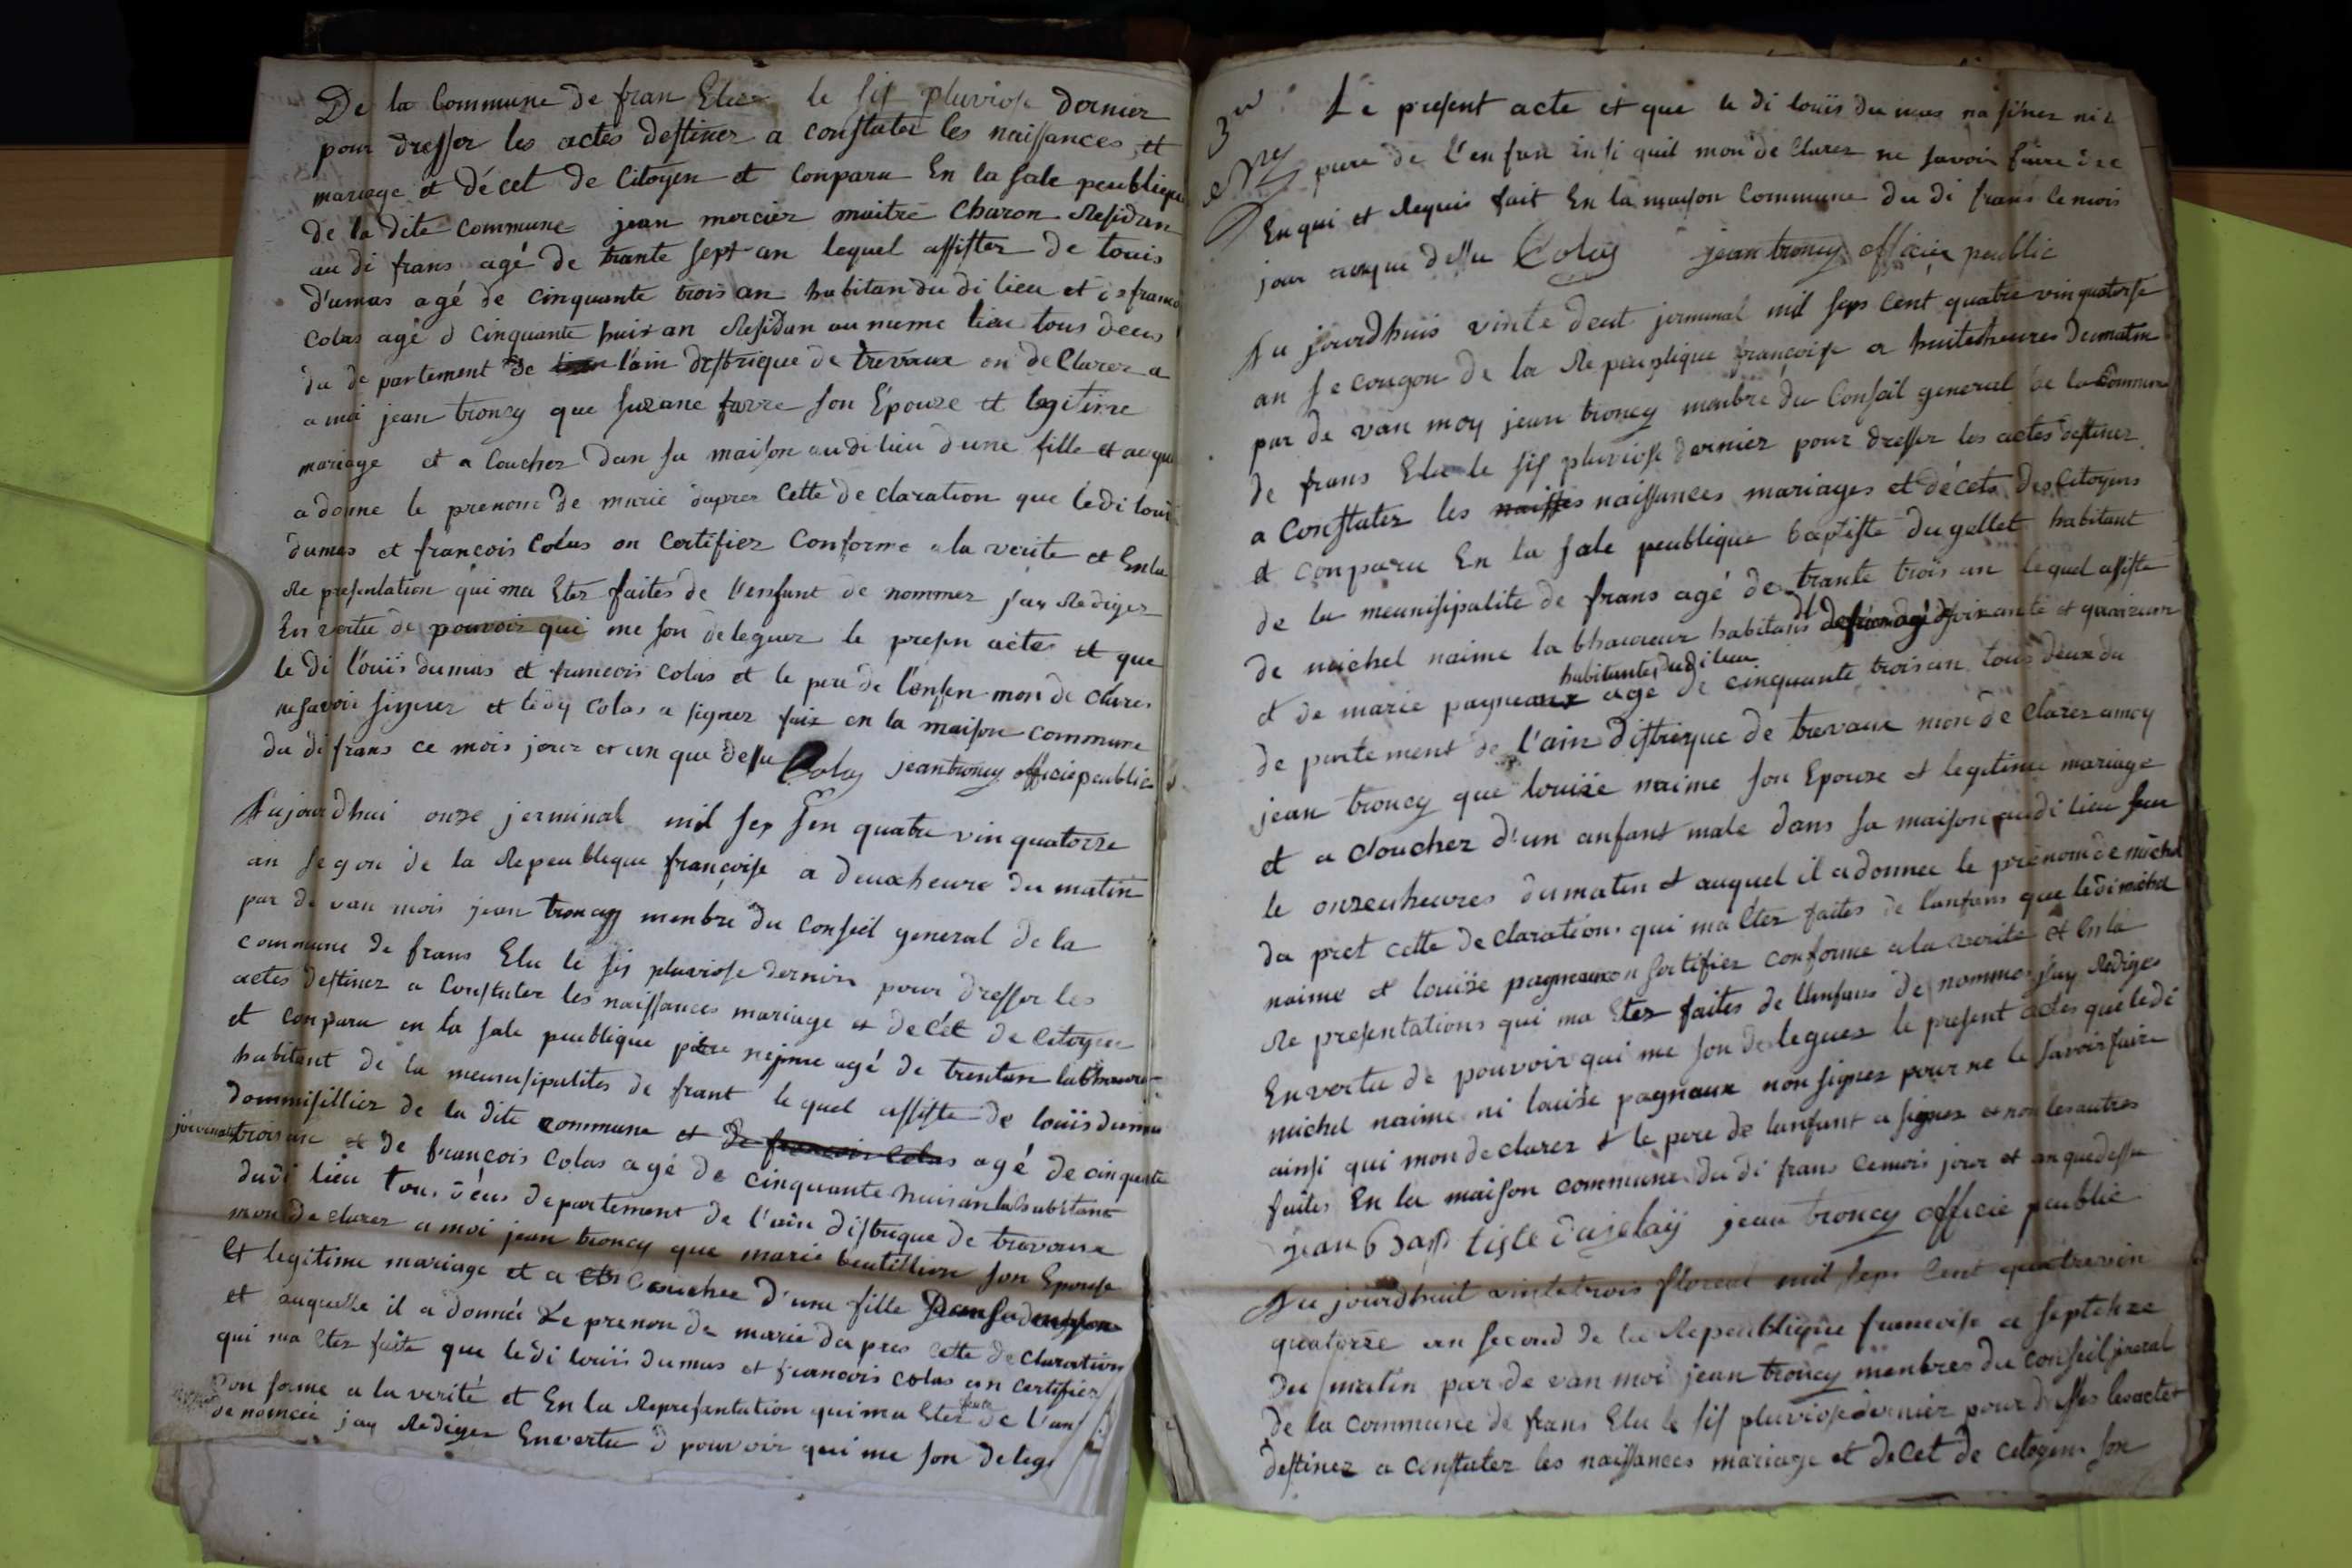 De la Commune de fran Elu le sis pluviose dernier
pour dresser les actes destinez a constater les naissances et
mariage et décet de Citoyen et Conparu En la sale peublique
De la dite commune jean mercier maitre Charon Residan
au di frans agé de trante sept an lequel assister de louis
d'umas agé de cinquante trois an habitan du di lieu et de franco
Colas agé d cinquante huis an Residan au meme lieu tous deus
du de partement de l'ain destrique de trevaux on de Clarez a
a moi jean troncy que suzane favre son Epouze et legitime
mariage et a Couchez dan sa maison audi lieu dune fille et au que
a donne le prenom de marie dapres Cette de claration que ledi loui
dumas et francois Colas on Certifiez Conforme a la verite et En la
Re presentation qui ma Etez faites de l'enfant de nommez j'ay Rediger
En vertu de pouvoir qui me son deleguez le presen actes et que
le di l'ouis dumas et francois Colas et le pere de l'enfen mon de Clarer
ne savoir signer et ledy Colas a signez fait en la maison commune
du di frans ce mois jour et an que dessu Colas jean troncy officie peublic
Aujourdhui onze jerminal mil sep sen quatre vin quatorze
an segon de la Repeublique françoise a deuxheure du matin
par de van mois jean troncy menbre du conseil general de la
commune de frans Elu le sis pluviose dernier pour dresser les
actes destinez a Constater les naissances mariage et decet de Citoyen
et conparu en la sale peublique piere nejme agé de trentan labhoureur
habitant de la meunisipalites de frant le quel assiste de louis dumas
dommisillier de la dite commune et de francois Colas agé de cinquante
trois an et de francois Colas agé de cinquante huis an labsubitant
dudi lieu tous deus departement de l'ain distrique de trevoux
mon de clarez a moi jean troncy que marie boutillion son Epouse
Et legitime mariage et a Couchee d'une fille Dans sa maison
et auquelle il a donnée Le prenon de marie da pres cette declaration
qui ma Etez faite que le di louis dumas et francois colas on certifier
Con forme a la verité et En la Representation qui ma Etez faite de l'an
de nomcée jay Rediger Envertu d pouvoir qui me son deleg
3
Le present acte et que le di louis du mas na sinez ni l
pere de l'enfan insi quil mon de Clarez ne savoir faire de ce
Enqui et Requis fait En la maison Commune du di frans le mois
jour anque dessu Colas jean troncy officier peublic
Au jourdhuis vinte deut jerminal mil seps Cent quatre vin quatorse
an secougon de la Repeuplique françoise a huiteheures Dumatin
par de van moy jean troncy menbre du Conseil general de la Commune
de frans Elu le sis pluviose dernier pour dresser les actes destinez
a Constater les naisses naissances mariages et décets des Citoyens
et conparu En la sale peublique baptiste dugellet habitant
de la meunisipalite de frans agé de trante trois an lequel assiste
de michel naime labhoureur habitans soixante et quainzean
habitante dudi lieu
et de marie pagneaux agé de cinquante trois an tous deux du
de partement de l'ain distrique de trevaux mon de clarez amoy
jean troncy que louise naime son Epouze et legitime mariage
et a Couchez d'un anfant male dans sa maison audi lieu sur
le onzeuheures dumaten et auquel il a donnee le prenom de michel
da pret cette declarations qui ma Etez faites de l'anfans que ledi michel
naime et louise pagneaux on sertifier conforme a la verite et En la
Re presentations qui ma Etez faites de l'anfans de nommez j'ay Rediger
Envertu de pouvoir qui me son de leguez le present actes que le di
michel naime ni louise pagnaux non signez pour ne le savoir faire
ainsi qui mon declarez et le pere de lanfant a signez et non les autres
faites En la maison commune du di frans cemois jour et an quedessu
jean bapptiste dujelaÿ jean troncy officie peublic
Au jourdhuit vintetrois floreal mil seps Cent quatrevin
quatorze an second de la Repeublique francoise a septehre
Du matin par de van moi jean troncy menbres du conseil jneral
De la commune de frans Elu le sis pluviose dernier pour dresser les actes
destinez a constatez les naissances mariage et decet de citoyens son